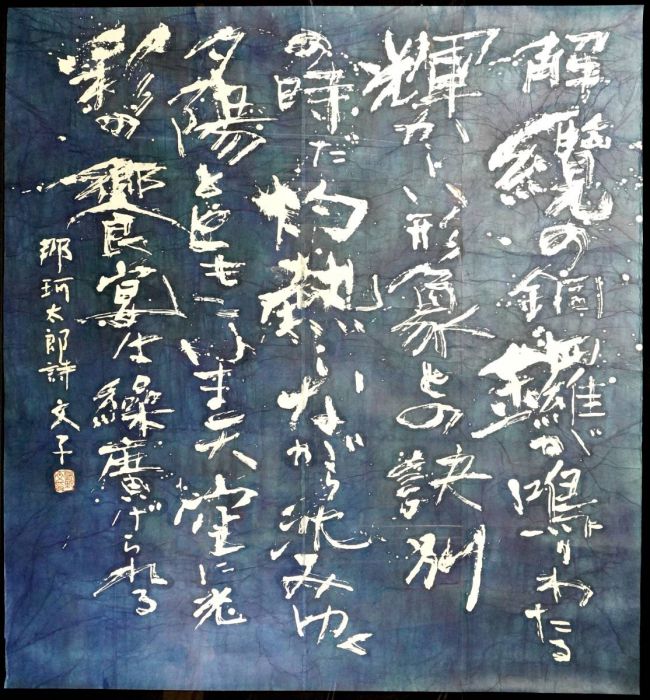 解纜の銅鑼が鳴りわたる
輝かしい形象との訣別
の時だ灼熱しながら沈みゆく
夕陽とともにいま天空に光
彩の饗宴は繰廣げられる
那珂太郎詩 文子